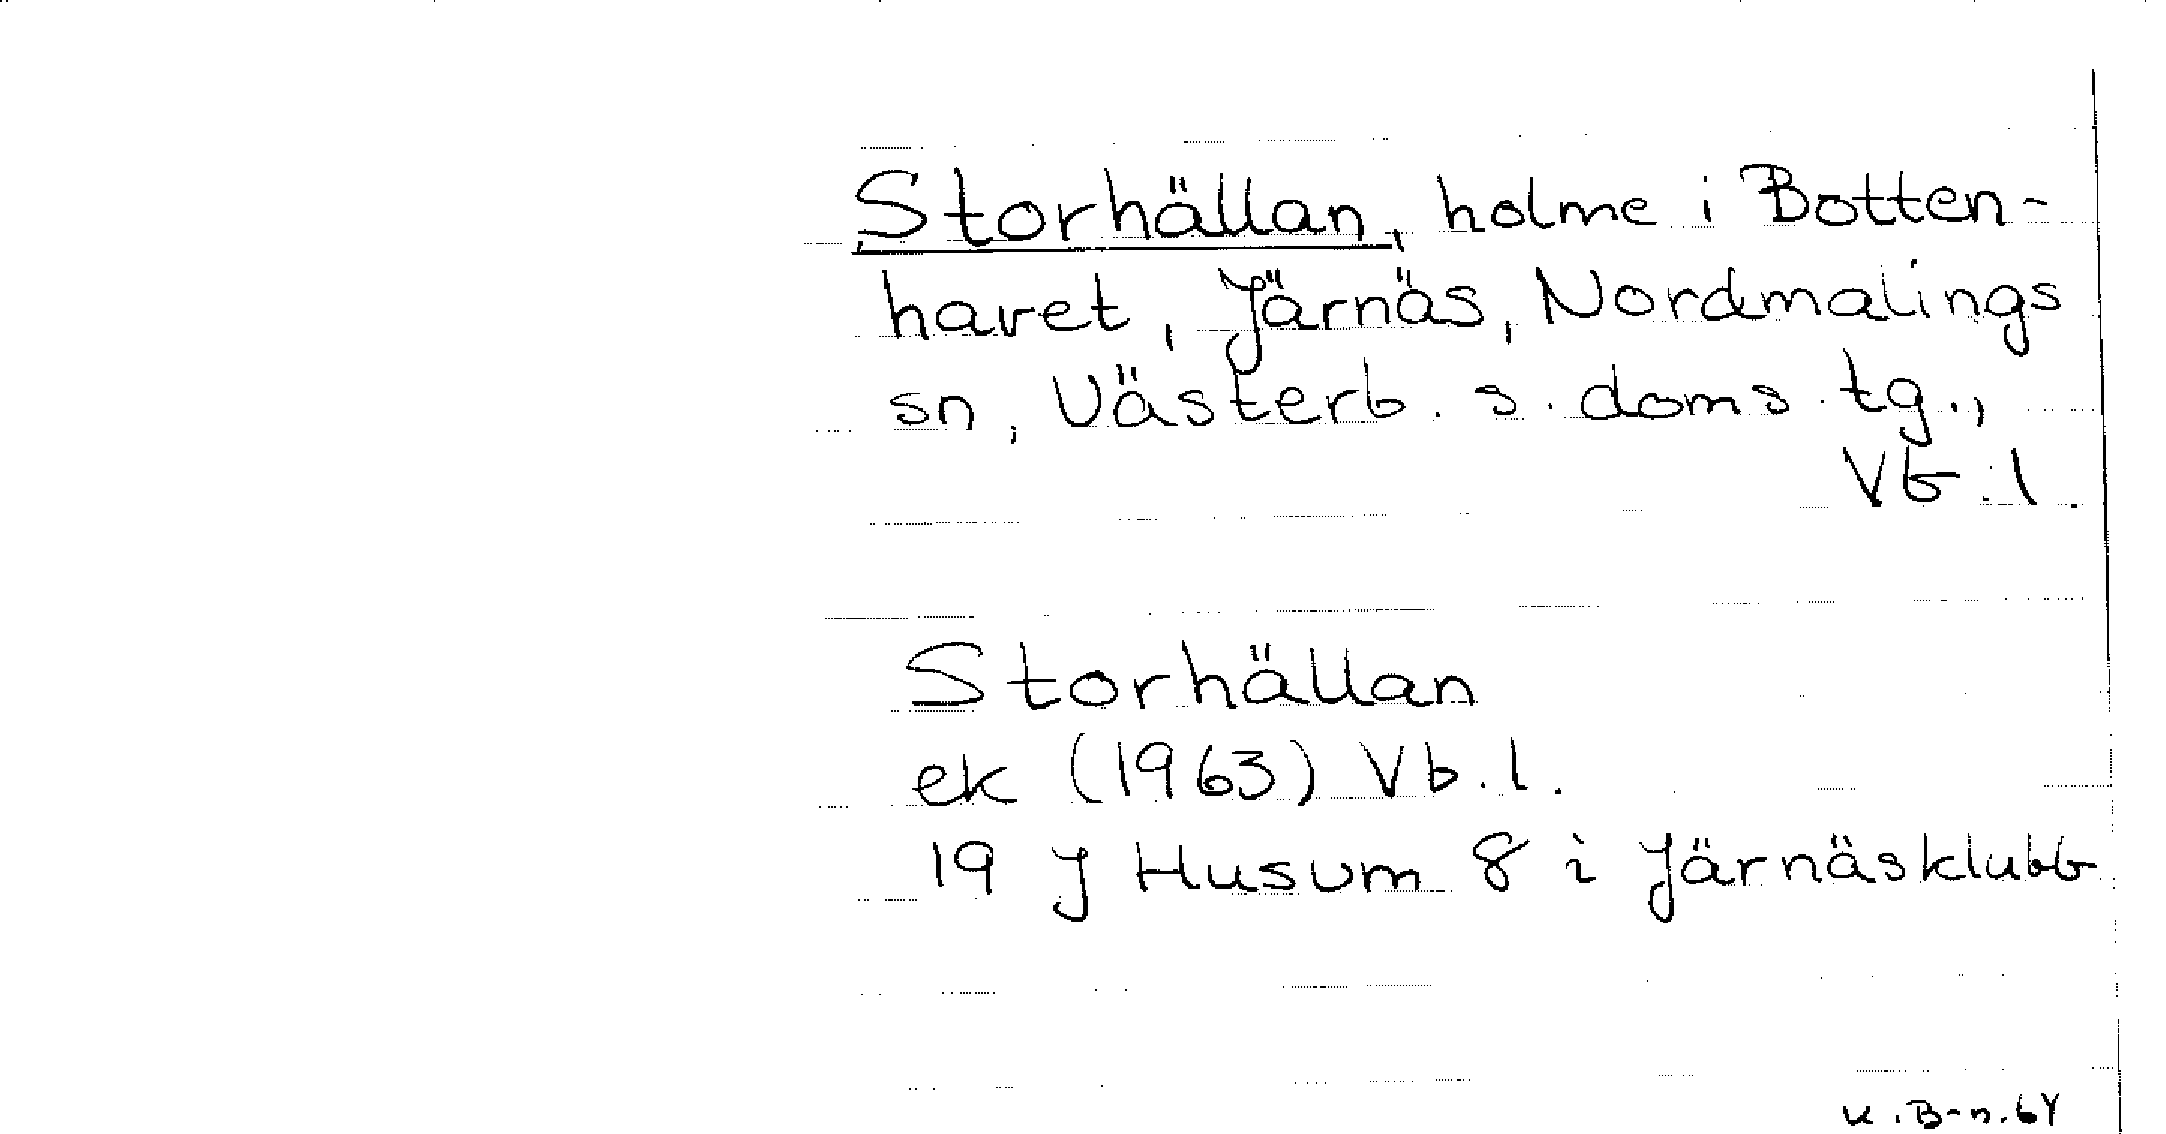 Storhällan, holme i Botten-
havet, Järnäs, Nordmalings
sn, Västerb. s. doms. tg.,
Vb. l.
Storhällan
ek (1963) Vb. l.
19 J Husum 8 i Järnäsklubb
K. B-n. 64